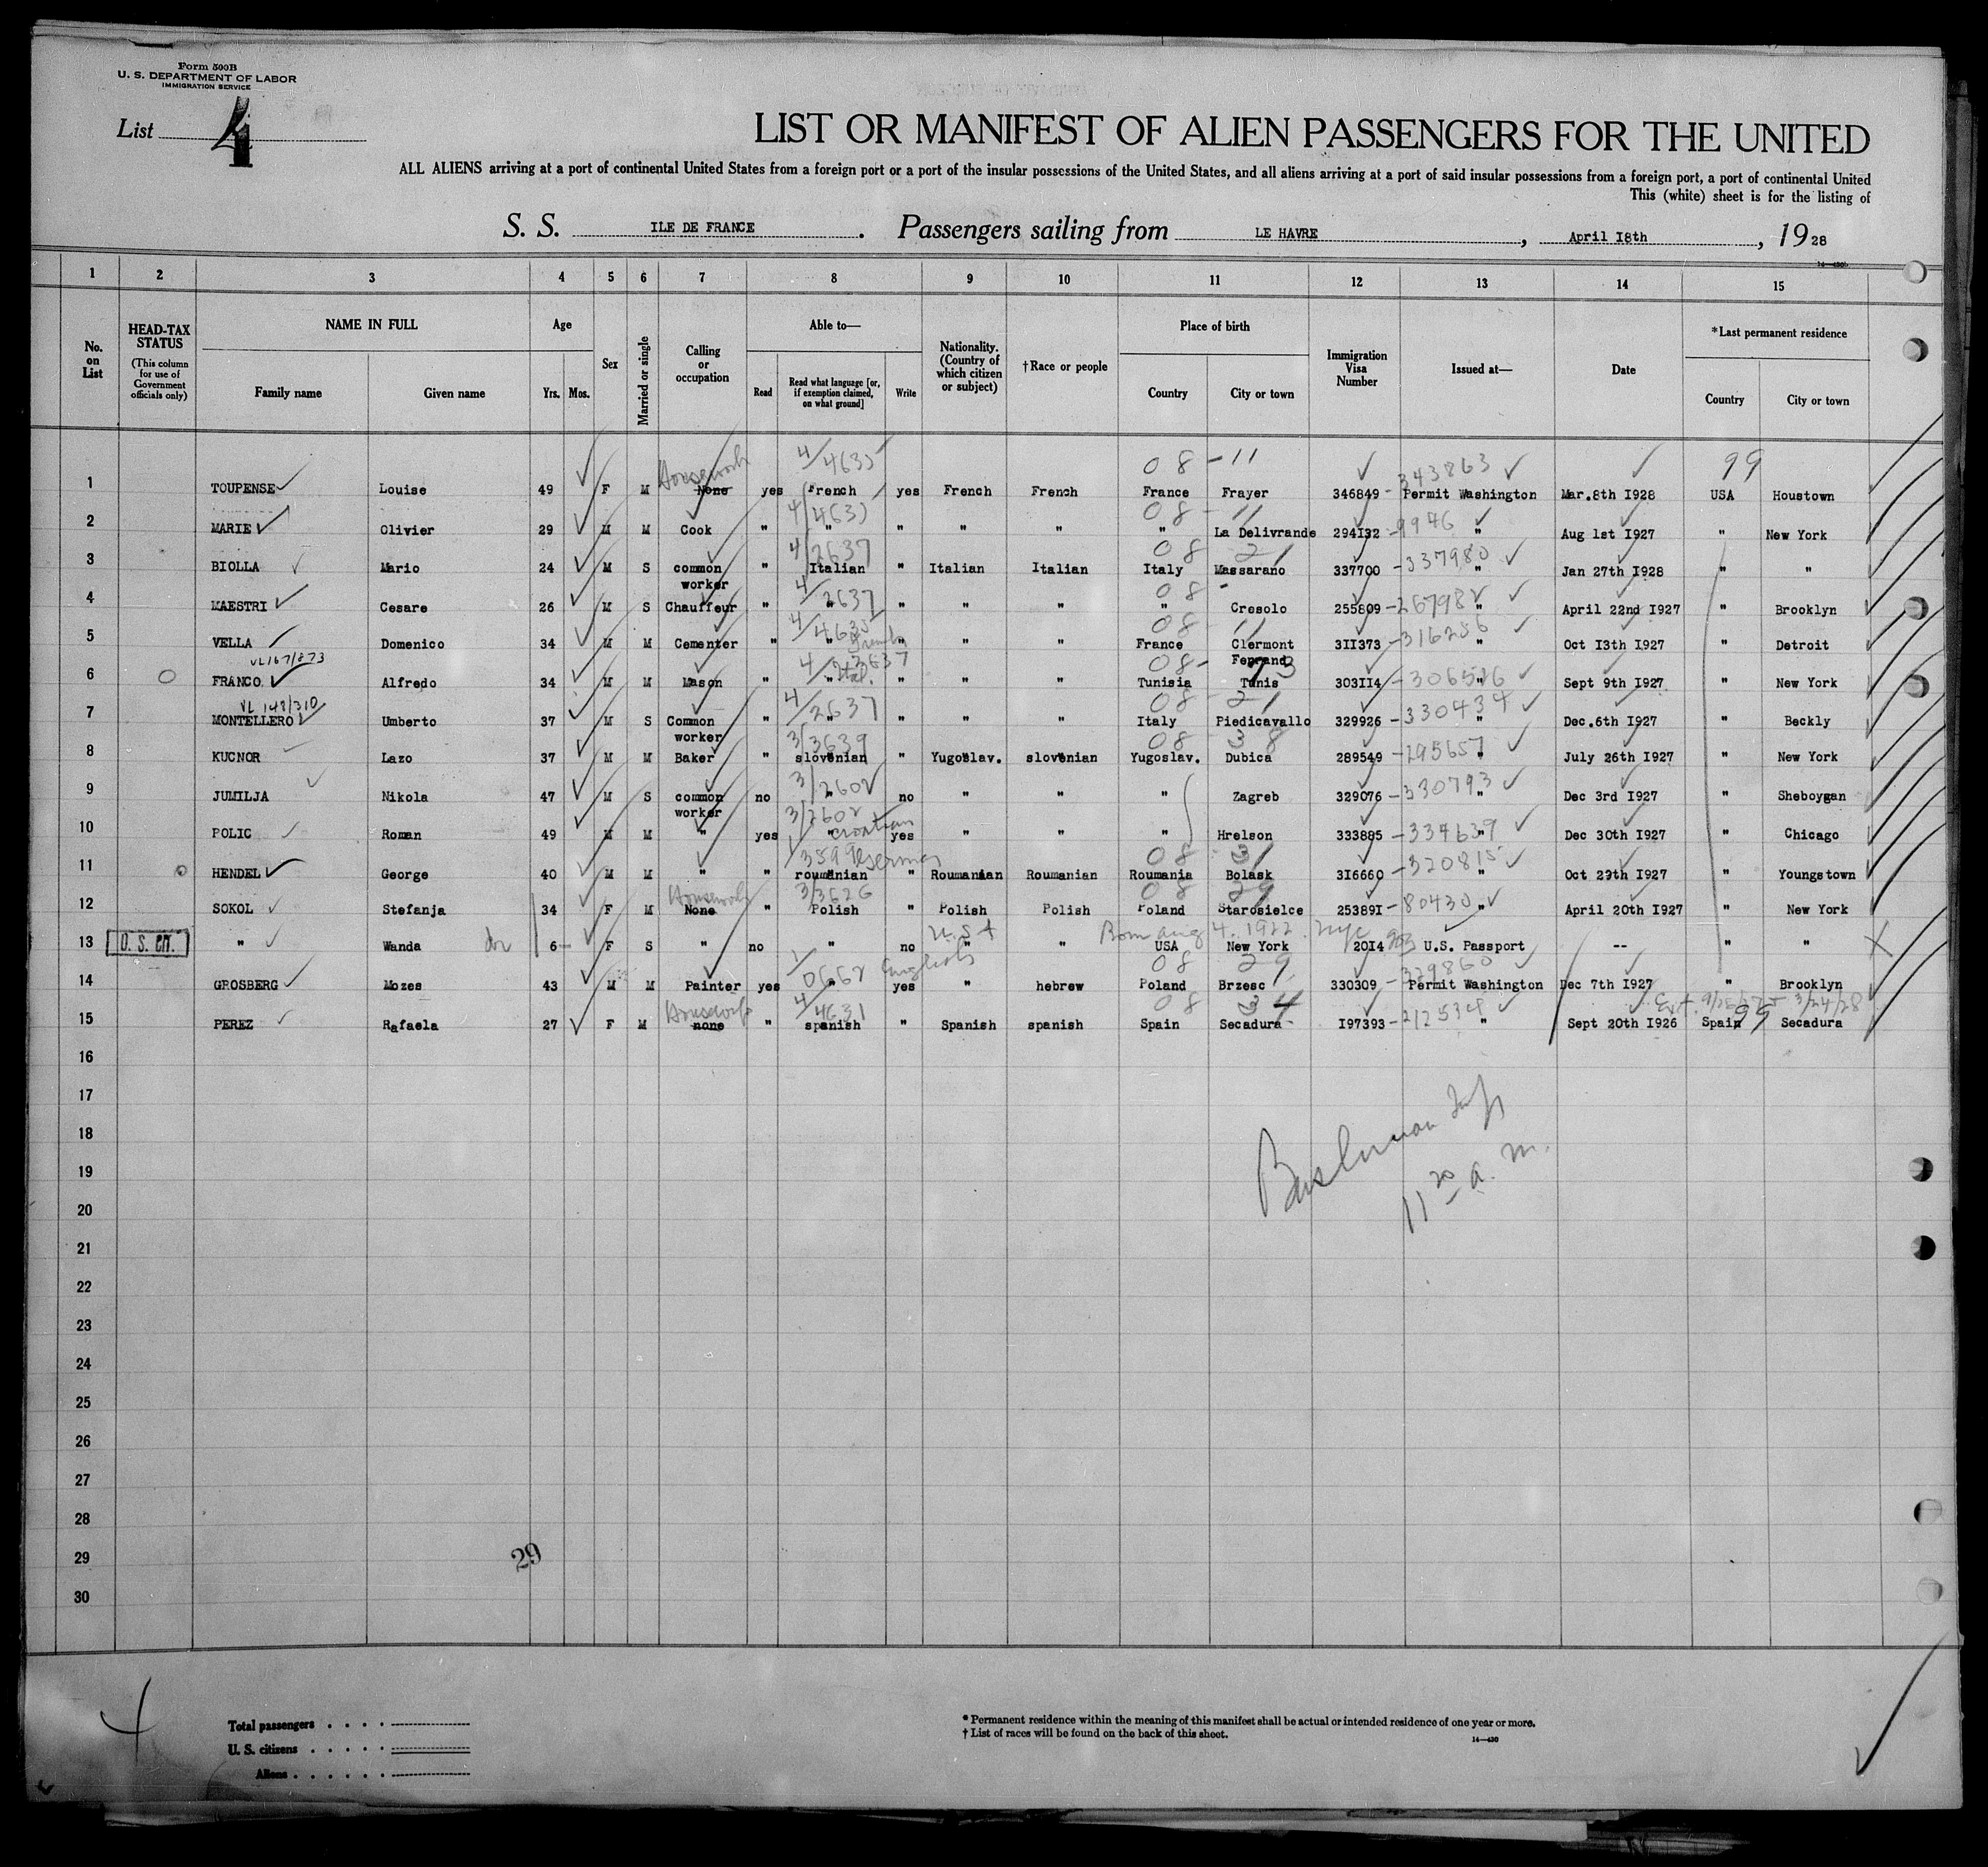 Form 500B
U. S. DEPARTMENT OF LABOR
IMMIGRATION SERVICE
List 4
LIST OR MANIFEST OF ALIEN PASSENGERS FOR THE UNITED
ALL ALIENS arriving at a port of continental United States from a foreign port or a port of the insular possessions of the United States, and all aliens arriving at a port of said insular possessions from a foreign port, a port of continental United
This (white) sheet is for the listing of
S. S. ILE DE FRANCE. Passengers sailing from LE HAVRE, April I8th, 1928
1 2 3 4 5 6 7 8 9 10 11 12 13 14 15
No. on List
HEAD-TAX STATUS (This column for use of Government officials only)
NAME IN FULL Family name Given name
Age Yrs. Mos.
Sex
Married or single
Calling or occupation
Able to— Read Read what language [or, if exemption claimed, on what ground] Write
Nationality. (Country of which citizen or subject)
†Race or people
Place of birth Country City or town
Immigration Visa Number
Issued at—
Date
*Last permanent residence Country City or town
Housework 4/4635 08-11 343863 99
1 TOUPENSE Louise 49 F M None yes French yes French French France Frayer 346849 Permit Washington Mar.8th I928 USA Houstown
08-11 9946
2 MARIE Olivier 29 M M Cook " " " " " " La Delivrande 294I32 " Aug 1st I927 " New York
4/2637 08 21 337980
3 BIOLLA Mario 24 M S common worker " Italian " Italian Italian Italy Massarano 337700 " Jan 27th I928 " "
4/2637 08 267982
4 MAESTRI Cesare 26 M S Chauffeur " " " " " " Cresolo 255809 " April 22nd I927 " Brooklyn
4/4635 French 08 11 316256
5 VELLA Domenico 34 M M Cementer " " " " " France Clermont Ferrand 3II373 " Oct I3th I927 " Detroit
VL167/873 4/2637 Ital. 08-73 306526
6 FRANCO Alfredo 34 M M Mason " " " " " Tunisia Tunis 303II4 " Sept 9th I927 " New York
VL 148/310 4/2637 08 21 330434
7 MONTELLERO Umberto 37 M S Common worker " " " " " Italy Piedicavallo 329926 " Dec.6th I927 " Beckly
3/3639 08 38 295657
8 KUCNOR Lazo 37 M M Baker " slovenian " Yugoslav. slovenian Yugoslav. Dubica 289549 " July 26th I927 " New York
3/2602 330793
9 JUMILJA Nikola 47 M S common worker no " no " " " Zagreb 329076 " Dec 3rd I927 " Sheboygan
3/2602 Croatian 334639
10 POLIC Roman 49 M M " yes " yes " " " Hrelson 333885 " Dec 30th I927 " Chicago
1/3599 German 08 31 320815
11 HENDEL George 40 M M " " roumanian " Roumanian Roumanian Roumania Bolask 3I6660 " Oct 29th I927 " Youngstown
Housework 3/3626 08 29 80430
12 SOKOL Stefanja 34 F M None " Polish " Polish Polish Poland Starosielce 25389I " April 20th I927 " New York
U.S.A Born Aug 4, 1922 NYC
13 U. S. CIT. " Wanda 6 F S " no " no " " USA New York 20I4 U.S. Passport -- " "
1/0662 English 08 29 329860
14 GROSBERG Mozes 43 M M Painter yes " yes " hebrew Poland Brzesc 330309 Permit Washington Dec 7th I927 " Brooklyn
Housework 4/4631 08 34 212534 3/24/28
15 PEREZ Rafaela 27 F M none " spanish " Spanish spanish Spain Secadura I97393 " Sept 20th I926 Spain 99 Secadura
16
17
18
19
20
21
22
23
24
25
26
27
28
29
30
11 20 a. m.
29
Total passengers
U. S. citizens
Aliens
* Permanent residence within the meaning of this manifest shall be actual or intended residence of one year or more.
† List of races will be found on the back of this sheet.
14—430